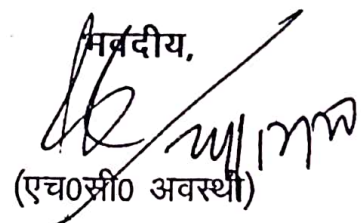 भवदीय,
(एच0सी0 अवस्थी)